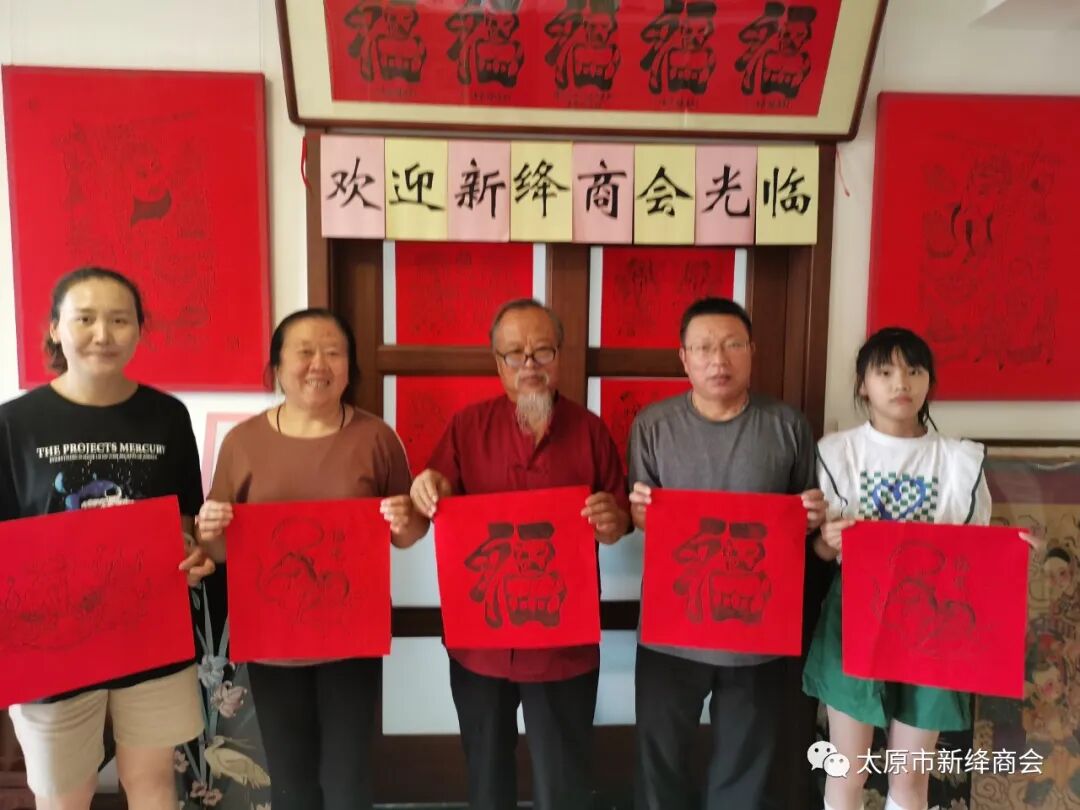 福 福 福 福 福
欢迎新绛商会光临
THE PROJECTS MERCURY
福 福
太原市新绛商会